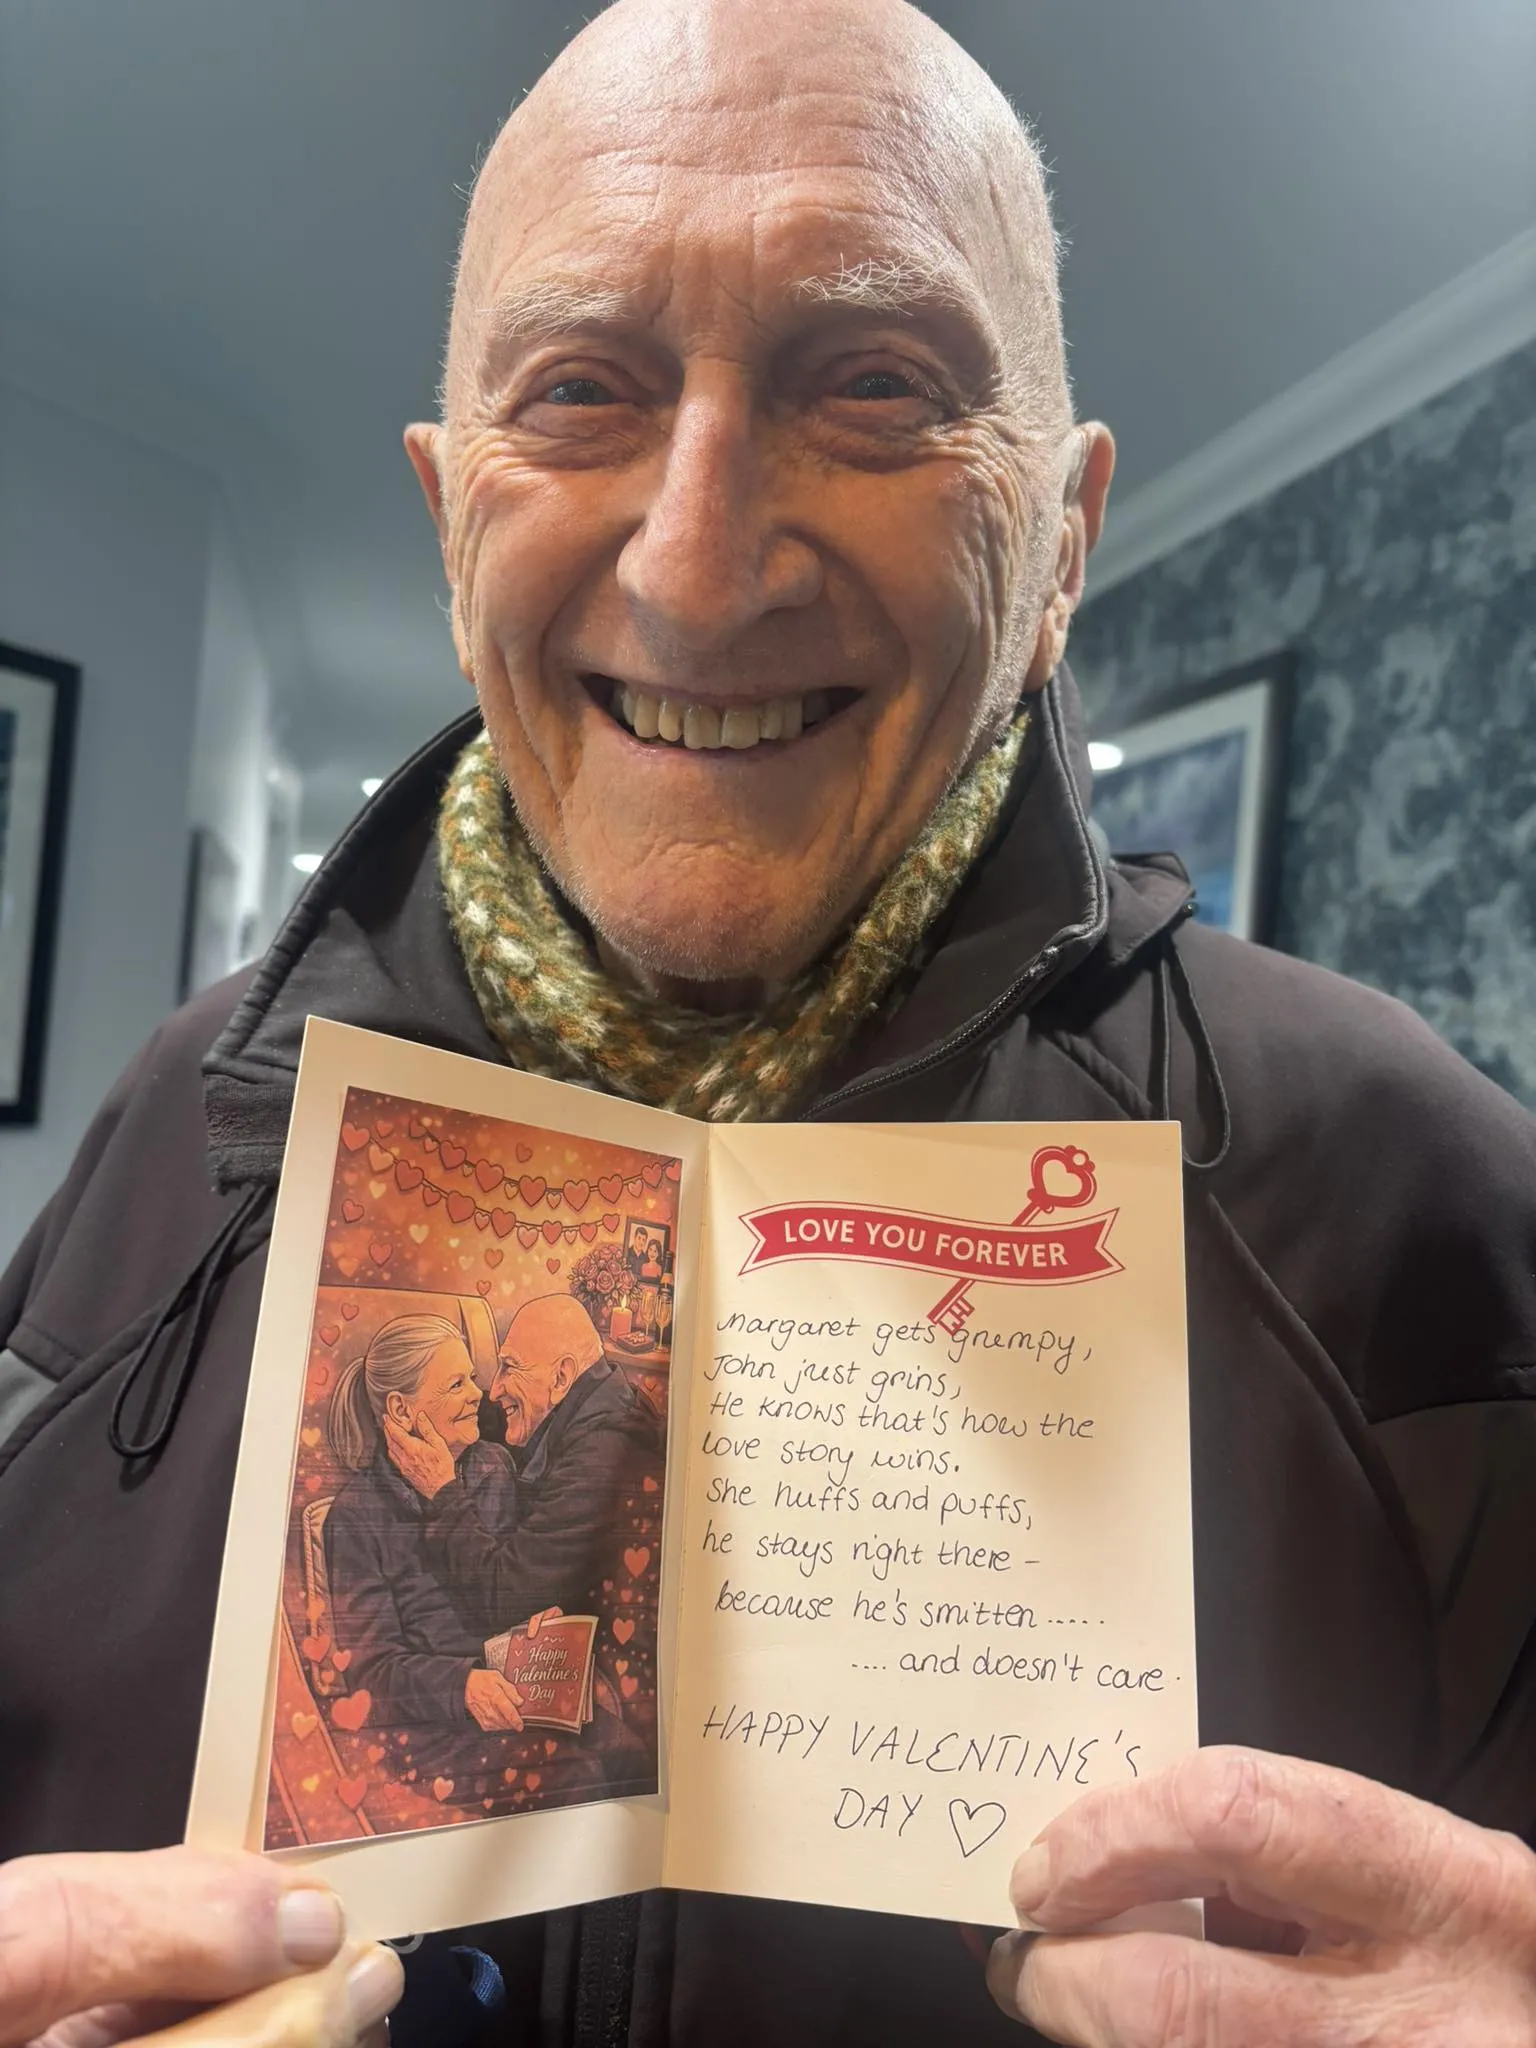 Happy
Valentine's
Day
LOVE YOU FOREVER
Margaret gets grumpy,
John just grins,
He knows that's how the
love story wins.
She huffs and puffs,
he stays right there -
because he's smitten .....
.... and doesn't care.
HAPPY VALENTINE'S
DAY ♡